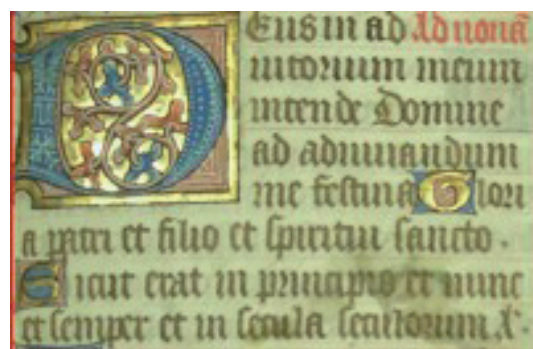 Deus in ad Ad nonā
iutorium meum
intende Domine
ad adiuuandum
me festina Glori
a patri et filio et spiritui sancto .
Sicut erat in principio et nunc
et semper et in secula seculorum A.